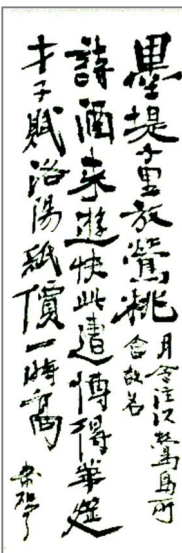 墨堤千里放鶯桃
月令注汉鶯鳥所
含故名
詩酒来遊快此遭博得華筵
才子賦洛陽紙價一時高